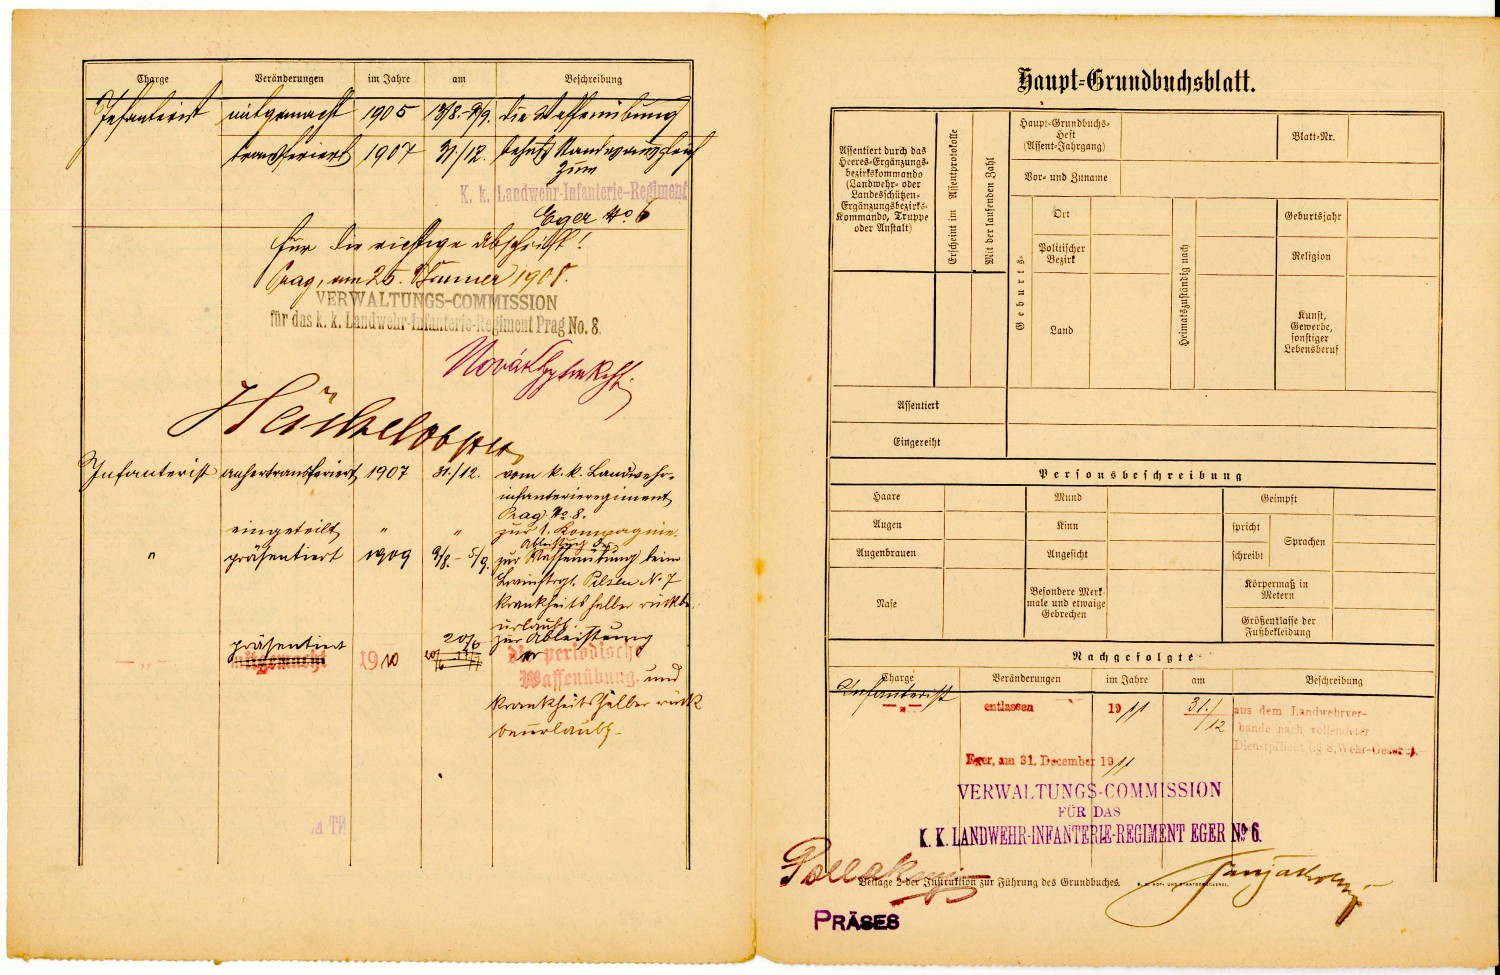 Charge Veränderungen im Jahre am Beschreibung
Infanterist mitgemacht 1905 die Waffenübung
transferiert 1907 31./12. behufs Standesausgleich
zum
K. k. Landwehr-Infanterie-Regiment
Eger No 6
Für die richtige Abschrift!
Prag, am 25. Jänner 1908.
VERWALTUNGS-COMMISSION
für das k. k. Landwehr-Infanterie-Regiment Prag No. 8.
Infanterist anhertransferiert 1907 31./12. vom k. k. Landwehr-
infanterieregiment
Prag No 8.
eingeteilt " " zur 1. Kompagnie.
Ableistung der
" präsentiert 1909 9/8. - 5/9. zur Waffenübung beim
Pilsen No 7
krankheitshalber rückbe-
urlaubt.
präsentiert 20/6 zur Ableistung
— „ — mitgemacht 1910 der periodische
Waffenübung und
krankheitshalber rück
beurlaubt.
Haupt-Grundbuchsblatt.
Assentiert durch das
Heeres-Ergänzungs-
bezirkskommando
(Landwehr- oder
Landesschützen-
Ergänzungsbezirks-
Kommando, Truppe
oder Anstalt)
Erscheint im Assentprotokolle
Mit der laufenden Zahl
Haupt-Grundbuchs-
Heft
(Assent-Jahrgang)
Blatt-Nr.
Vor- und Zuname
Geburts-
Ort
Politischer
Bezirk
Land
Heimatszuständig nach
Geburtsjahr
Religion
Kunst,
Gewerbe,
sonstiger
Lebensberuf
Assentiert
Eingereiht
Personsbeschreibung
Haare Mund Geimpft
Augen Kinn spricht Sprachen
Augenbrauen Angesicht schreibt
Nase
Besondere Merk-
male und etwaige
Gebrechen
Körpermaß in
Metern
Größenklasse der
Fußbekleidung
Nachgefolgte
Charge Veränderungen im Jahre am Beschreibung
Infanterist
— „ — entlassen 1911 31./12 aus dem Landwehrver-
bande nach vollendeter
Dienstpflicht (§ 8, Wehr-Gesetz).
Eger, am 31. December 1911
VERWALTUNGS-COMMISSION
FÜR DAS
K. K. LANDWEHR-INFANTERIE-REGIMENT EGER No 6.
Beilage 2 der Instruktion zur Führung des Grundbuches. K. K. HOF- UND STAATSDRUCKEREI.
PRÄSES